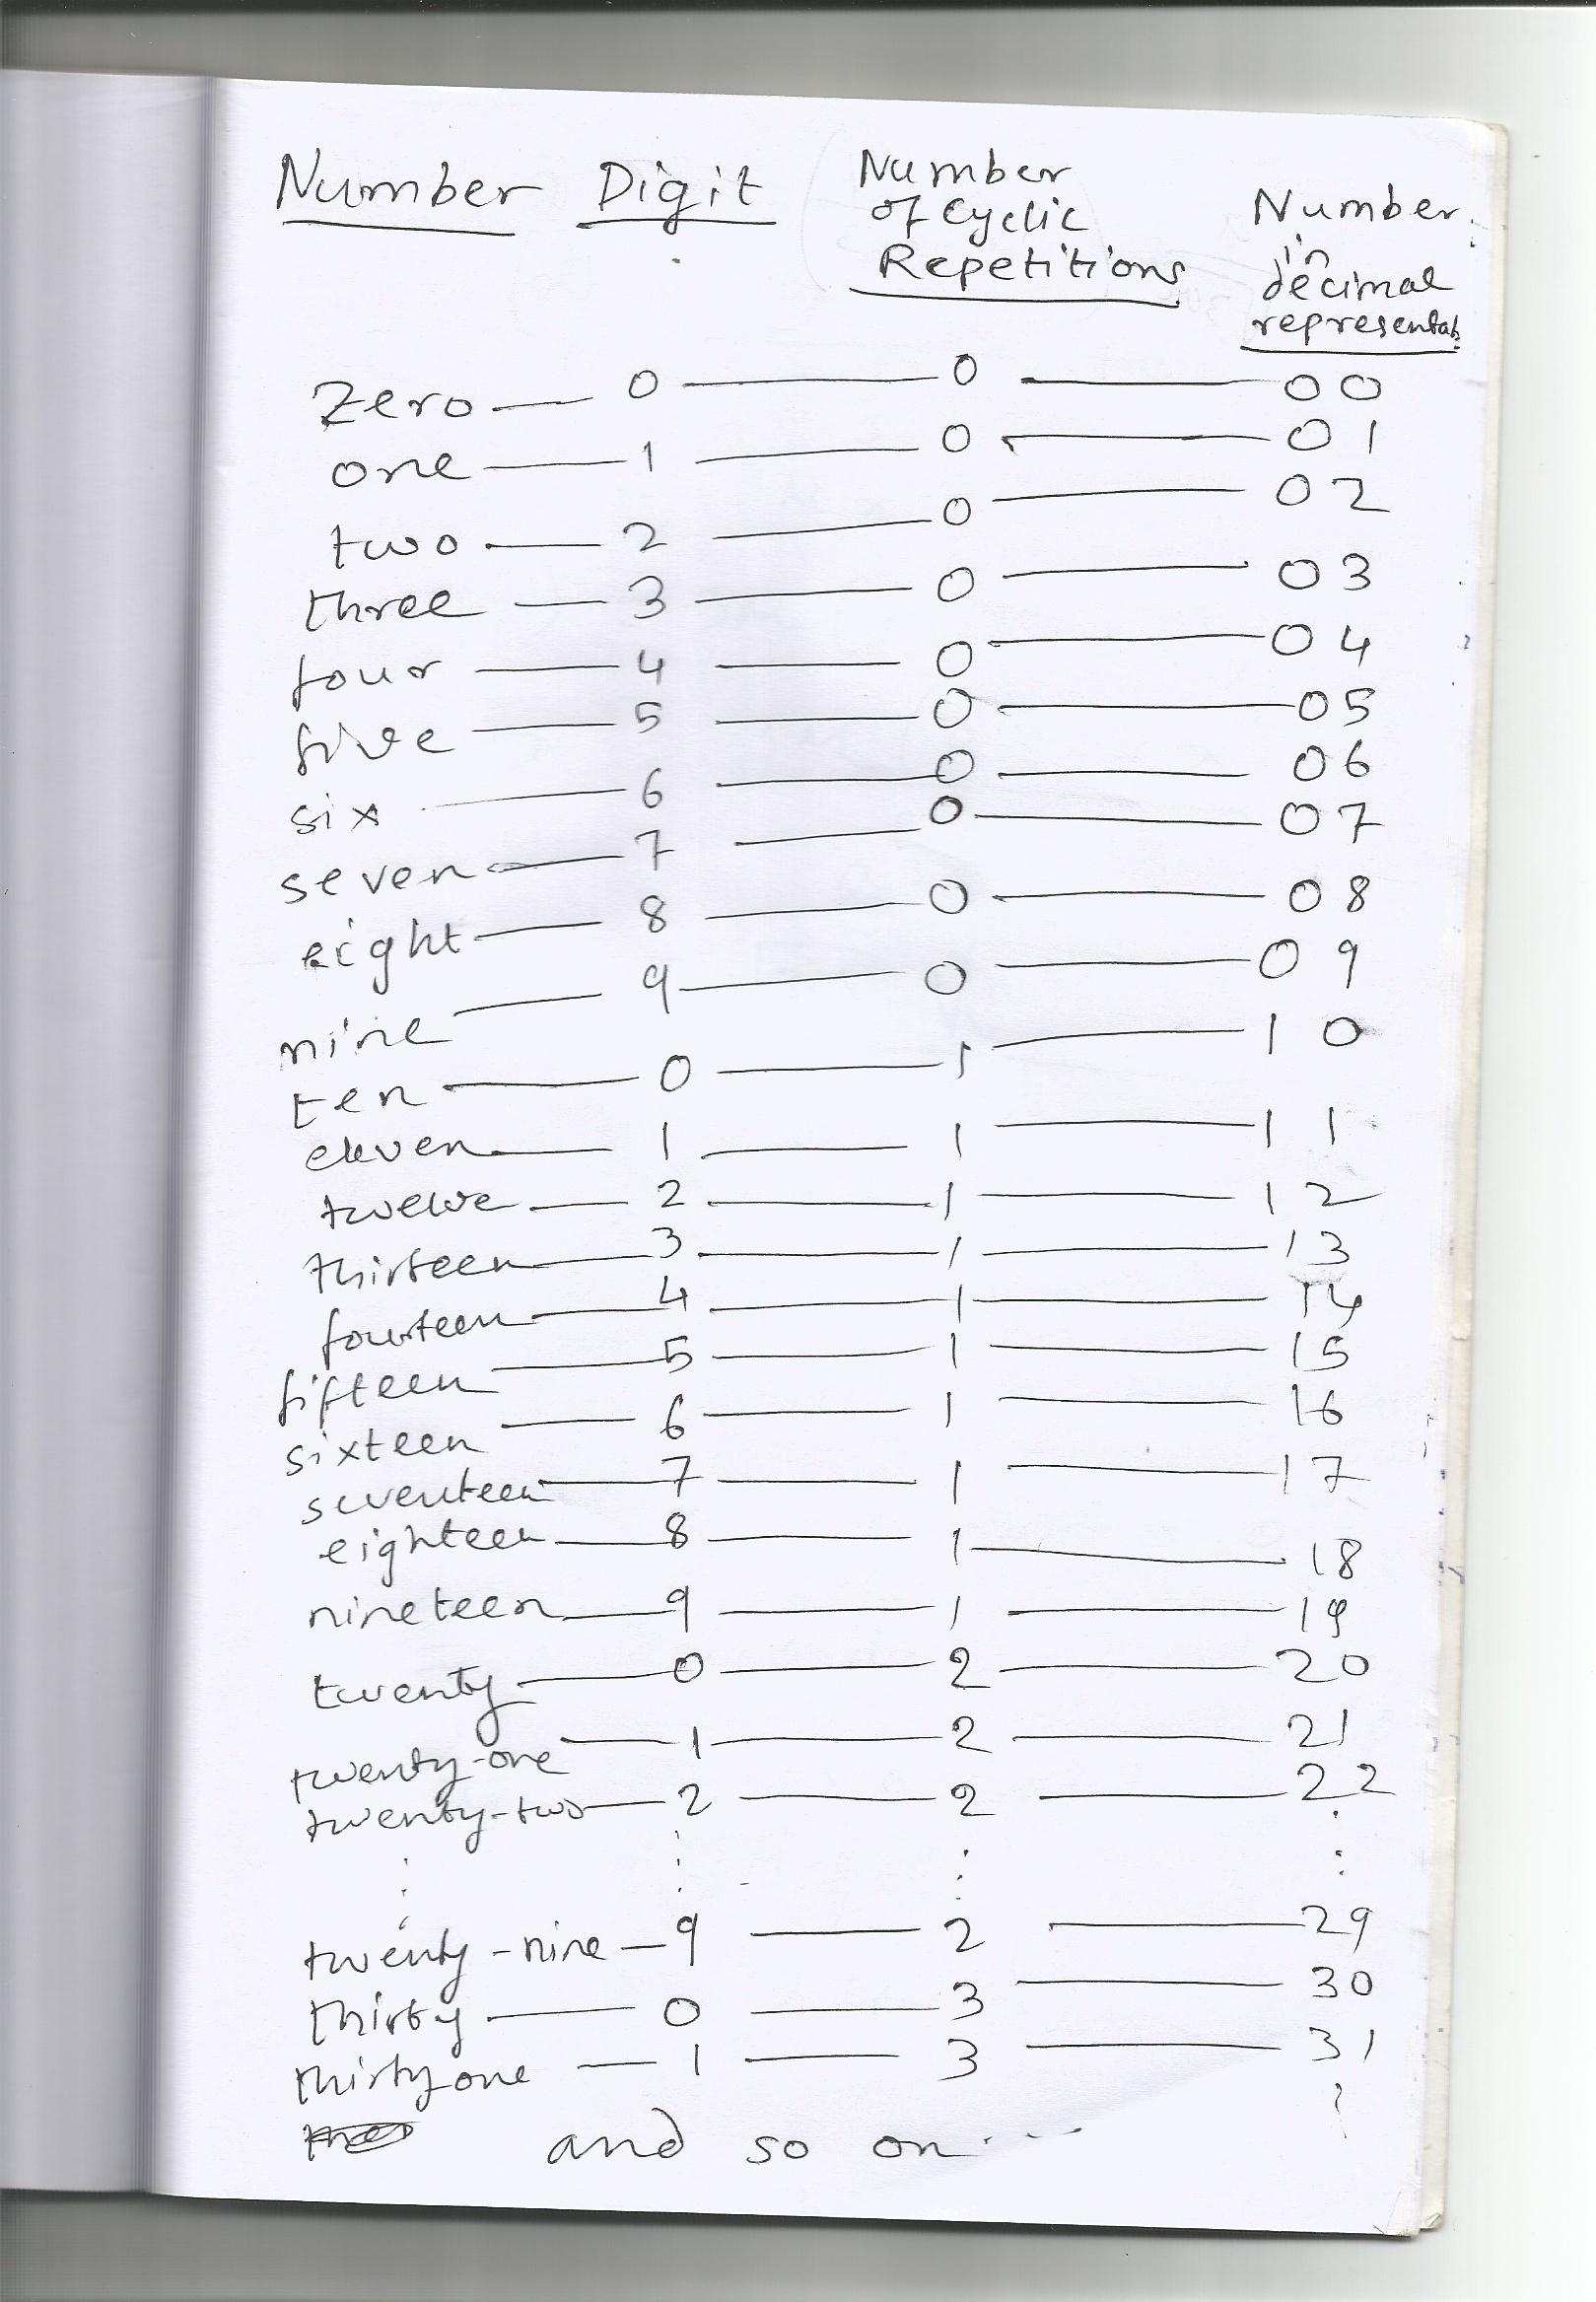 Number Digit Number of Cyclic Repetitions Number in decimal
zero — 0 — 0 — 00
one — 1 — 0 — 01
two — 2 — 0 — 02
three — 3 — 0 — 03
four — 4 — 0 — 04
five — 5 — 0 — 05
six — 6 — 0 — 06
seven — 7 — 0 — 07
eight — 8 — 0 — 08
nine — 9 — 0 — 09
ten — 0 — 1 — 10
eleven — 1 — 1 — 11
twelve — 2 — 1 — 12
thirteen — 3 — 1 — 13
fourteen — 4 — 1 — 14
fifteen — 5 — 1 — 15
sixteen — 6 — 1 — 16
seventeen — 7 — 1 — 17
eighteen — 8 — 1 — 18
nineteen — 9 — 1 — 19
twenty — 0 — 2 — 20
twenty-one — 1 — 2 — 21
twenty-two — 2 — 2 — 22
twenty-nine — 9 — 2 — 29
thirty — 0 — 3 — 30
thirty one — 1 — 3 — 31
and so on ....